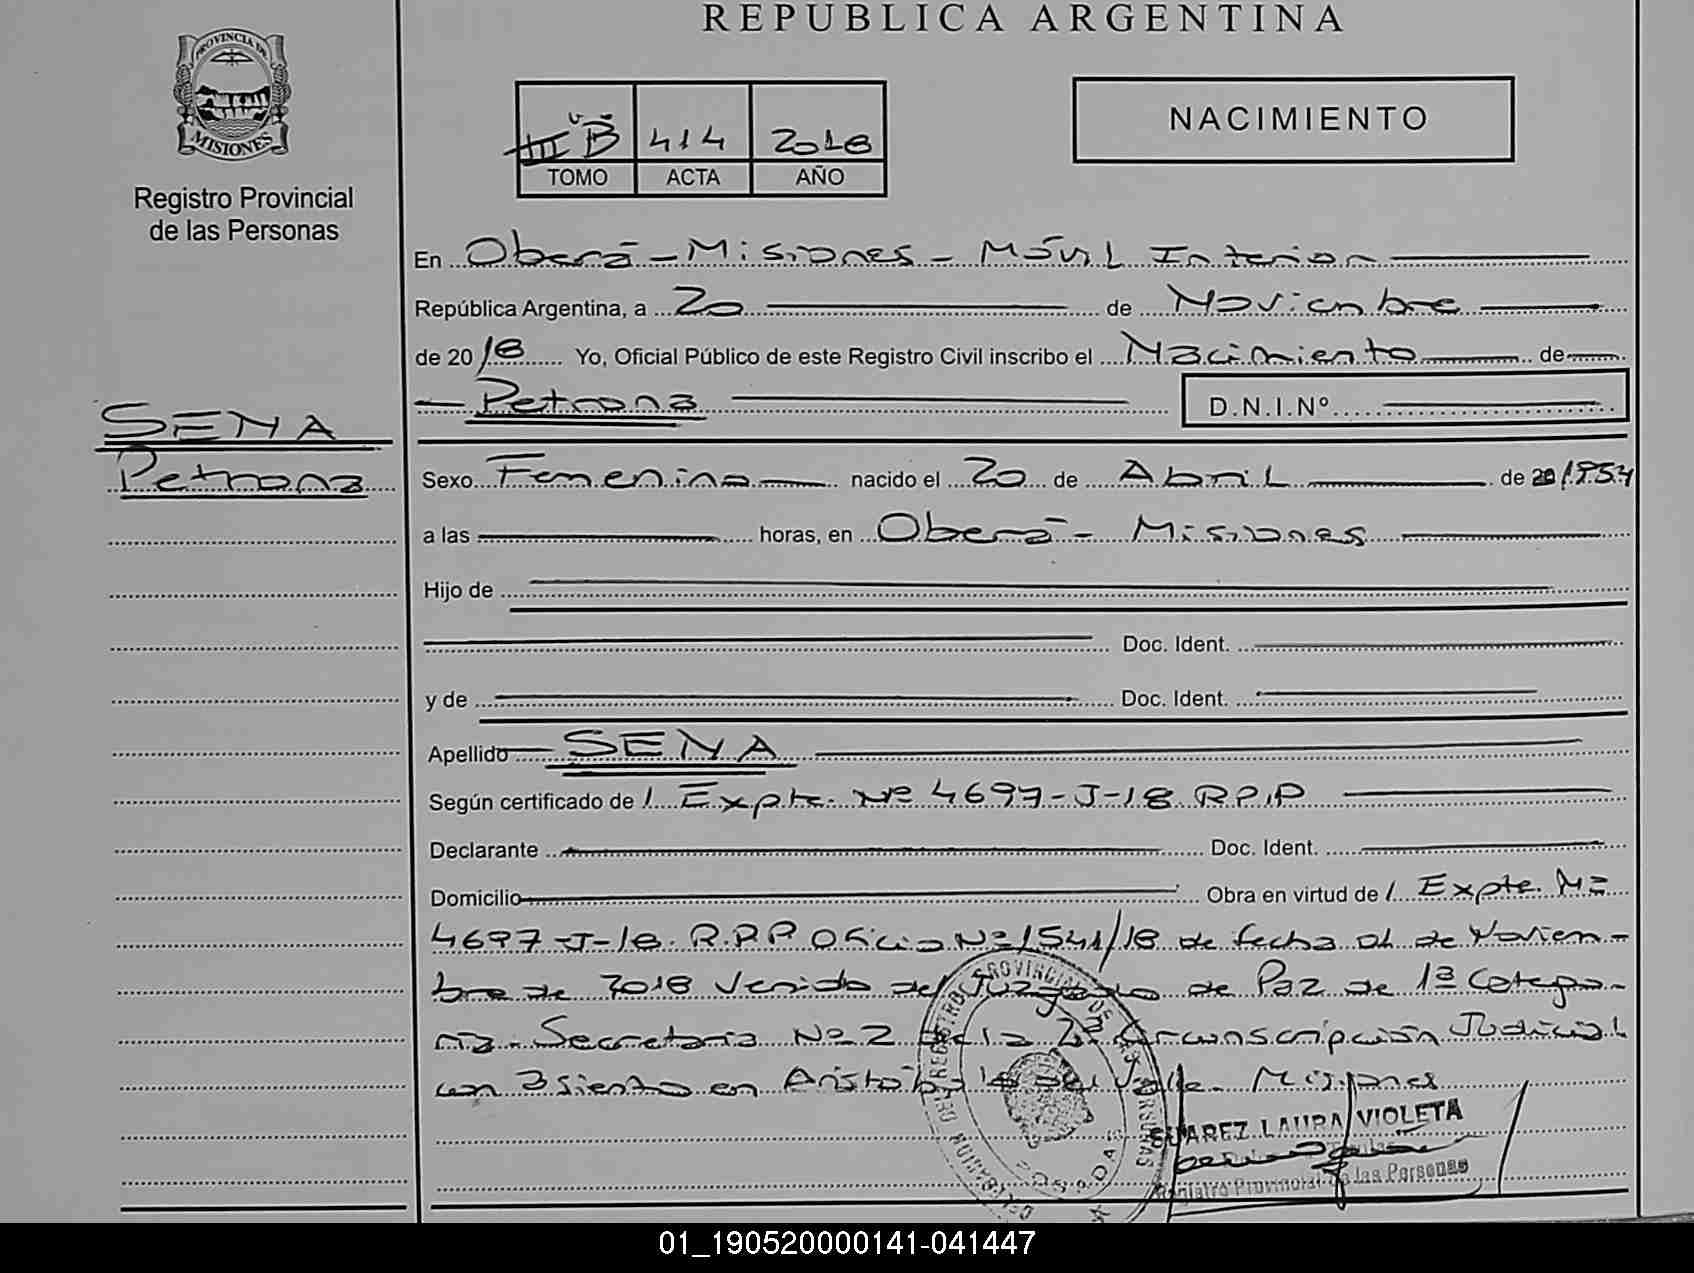 REPUBLICA ARGENTINA
PROVINCIA DE
MISIONES
Registro Provincial
de las Personas
III B 414 2018
TOMO ACTA AÑO
NACIMIENTO
En Oberá - Misiones - Móvil Interior
República Argentina, a 20 de Noviembre
de 2018 Yo, Oficial Público de este Registro Civil inscribo el Nacimiento de
Petrona D.N.I.Nº
SENA
Petrona
Sexo Femenino nacido el 20 de Abril de 20 1954
a las horas, en Oberá - Misiones
Hijo de
Doc. Ident.
y de Doc. Ident.
Apellido SENA
Según certificado de / Expte. Nº 4697-J-18 R.P.P
Declarante Doc. Ident.
Domicilio Obra en virtud de / Expte. Nº
4697-J-18. R.P.P Oficio Nº 1541/18 de fecha 01 de Noviem-
bre de 2018 Venido del Juzgado de Paz de 1ª Catego-
ria - Secretaria Nº 2 de la 2ª Circunscripción Judicial
con asiento en Aristóbulo del Valle - Misiones
SUAREZ LAURA VIOLETA
Registro Provincial de las Personas
POSADAS
01_190520000141-041447